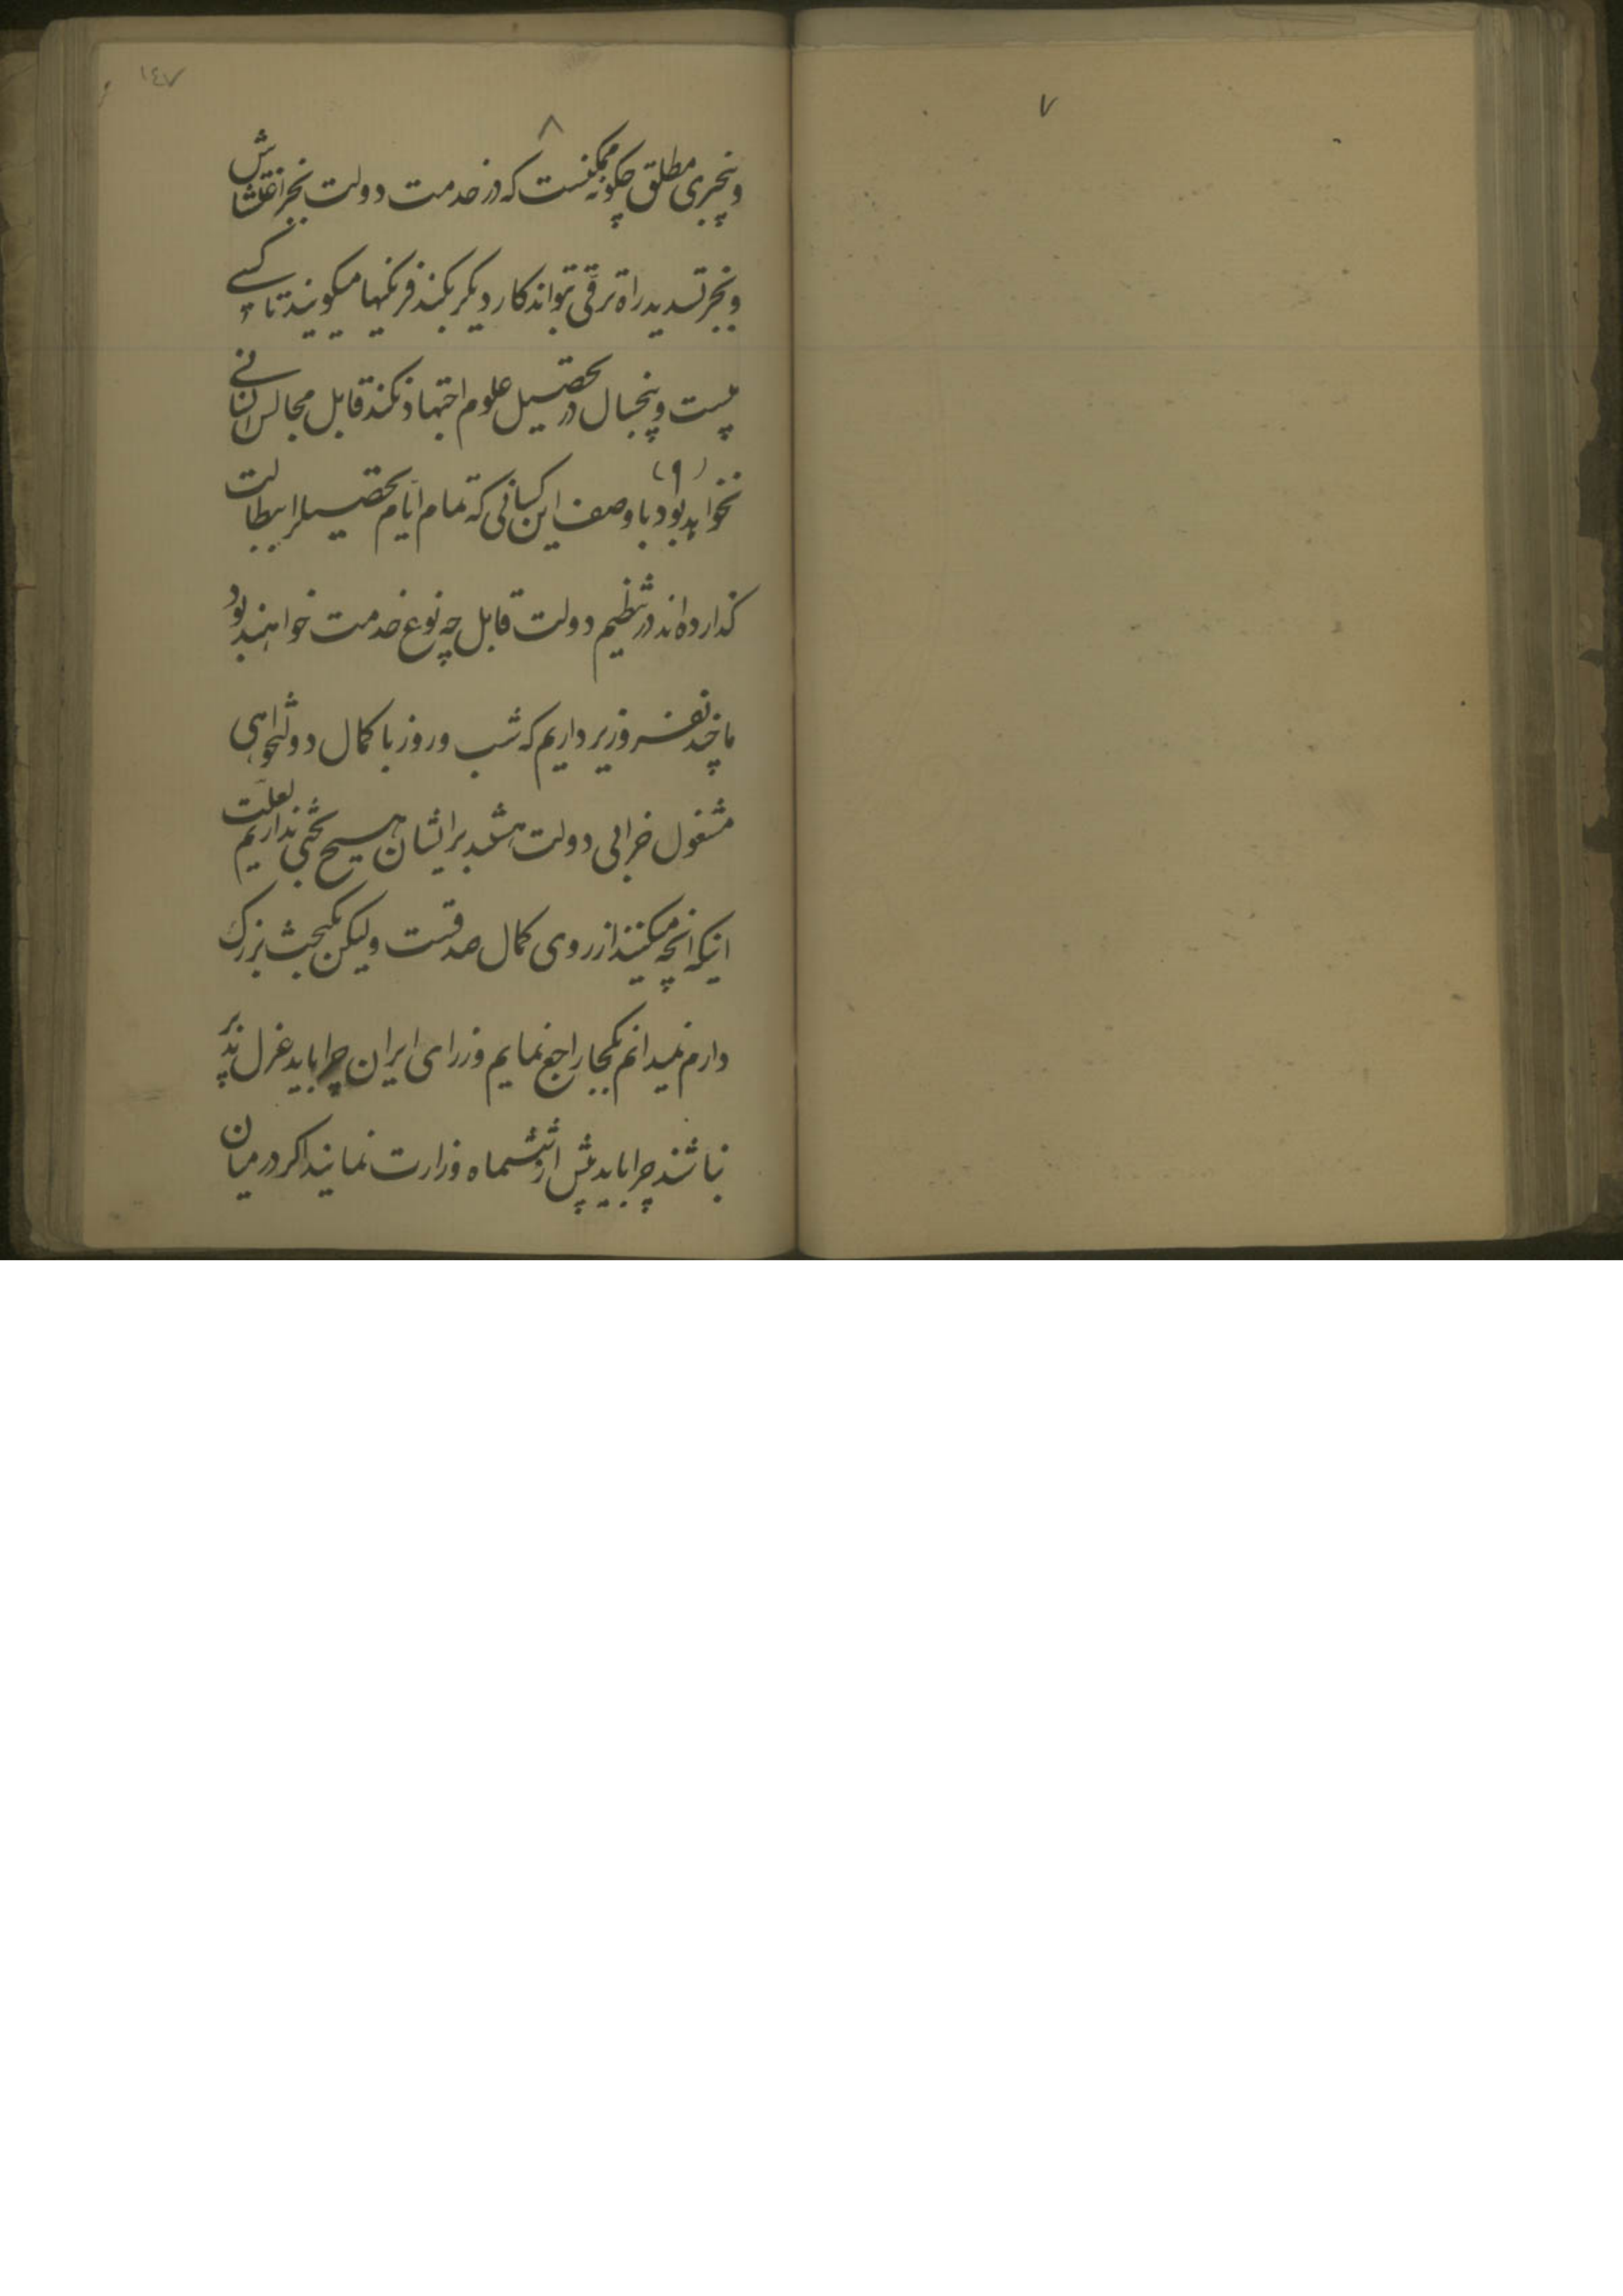 ٧
١٤٧
٨
وبیخبری مطلق چکونه ممکنست که در خدمت دولت بجز اغتشاش
و بجز تسدید راه ترقی بتواند کار دیکر بکنند فرنکیها میکویند تا کسی
بیست و پنجسال در تحصیل علوم اجتهاد نکند قابل مجالس
نخواهد بود با وصف این کسانی که تمام ایام تحصیلرا ببطالت
(٩)
کذارده‌اند در تنظیم دولت قابل چه نوع خدمت خواهند بود
ما چند نفر وزیر داریم که شب و روز با کمال دولتخواهی
مشغول خرابی دولت هستند برایشان هیچ بحثی نداریم بعلت
اینکه انچه میکنند از روی کمال صدقست ولیکن یکبحث بزرک
دارم نمیدانم بکجا راجع نمایم وزرای ایران چرا باید عزل پذیر
نباشند چرا باید بیش از ششماه وزارت نمایند اکر در میان